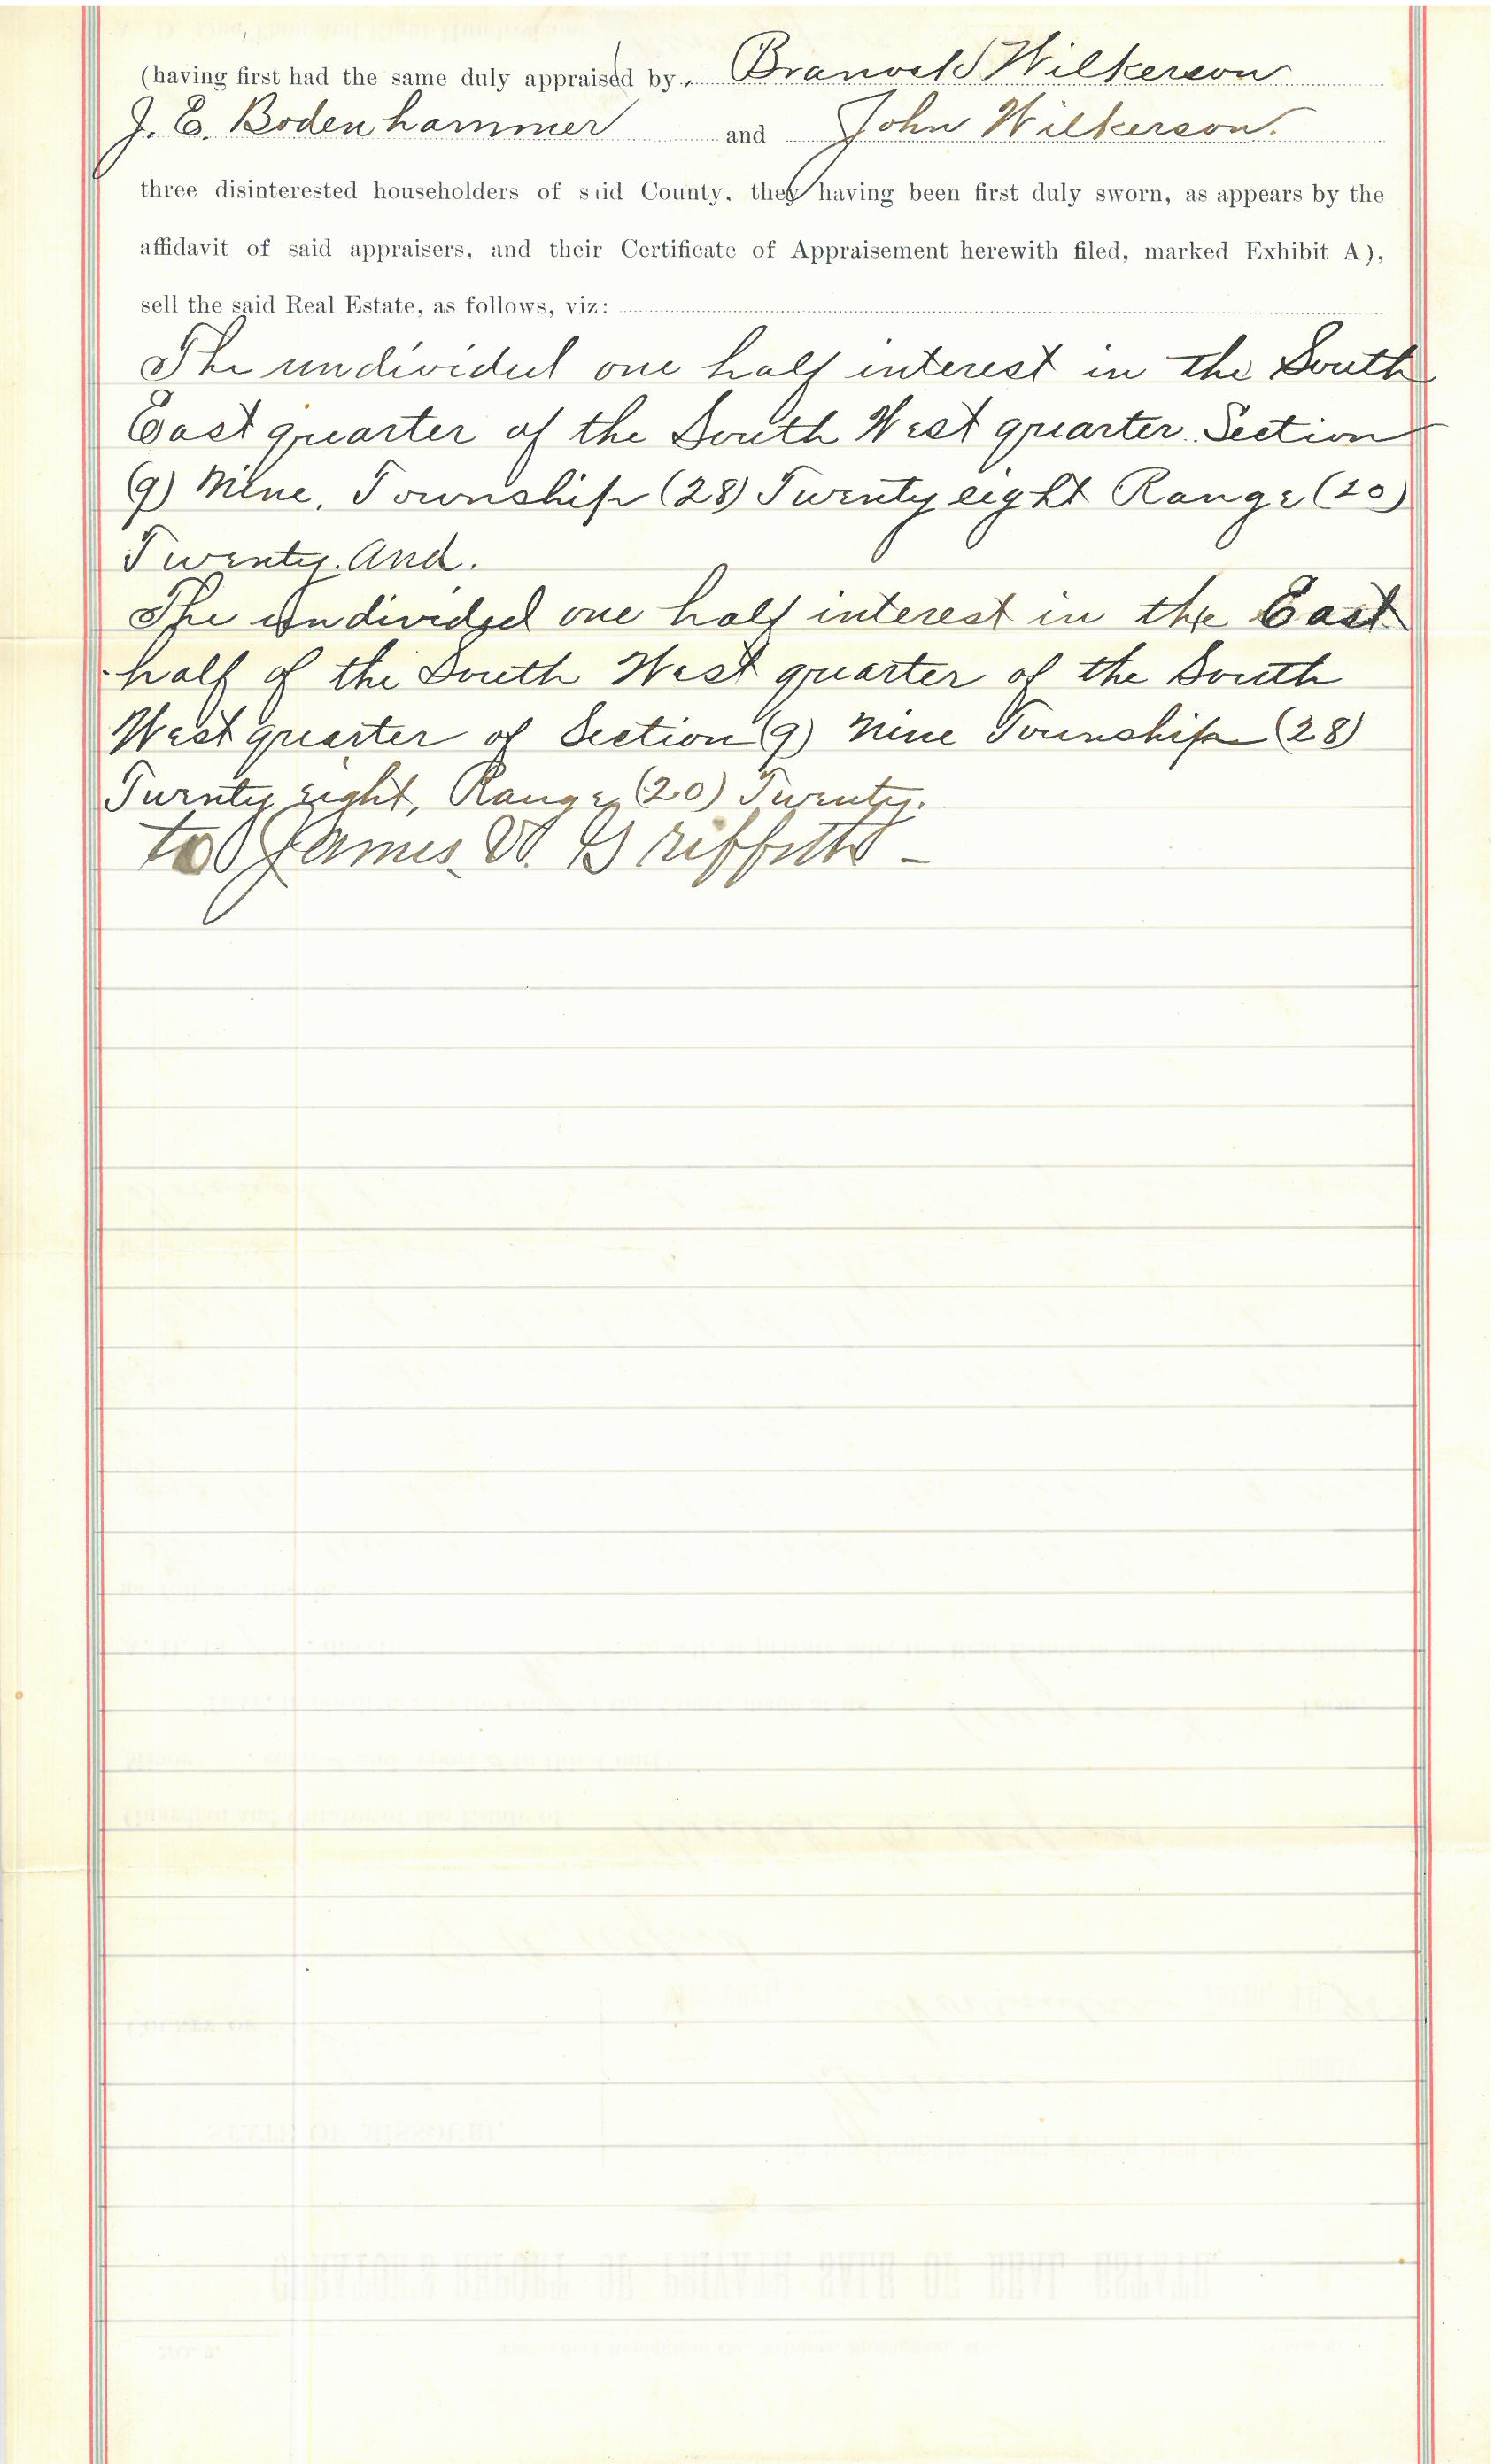 (having first had the same duly appraised by, Branock Wilkerson
J. E. Bodenhammer and John Wilkerson.
three disinterested householders of said County, they having been first duly sworn, as appears by the
affidavit of said appraisers, and their Certificate of Appraisement herewith filed, marked Exhibit A),
sell the said Real Estate, as follows, viz:
The undivided one half interest in the South
East quarter of the South West quarter Section
(9) Nine, Township (28) Twenty eight Range (20)
Twenty. And.
The undivided one half interest in the East
half of the South West quarter of the South
West quarter of Section (9) Nine Township (28)
Twenty eight, Range (20) Twenty.
to James V. Griffith -